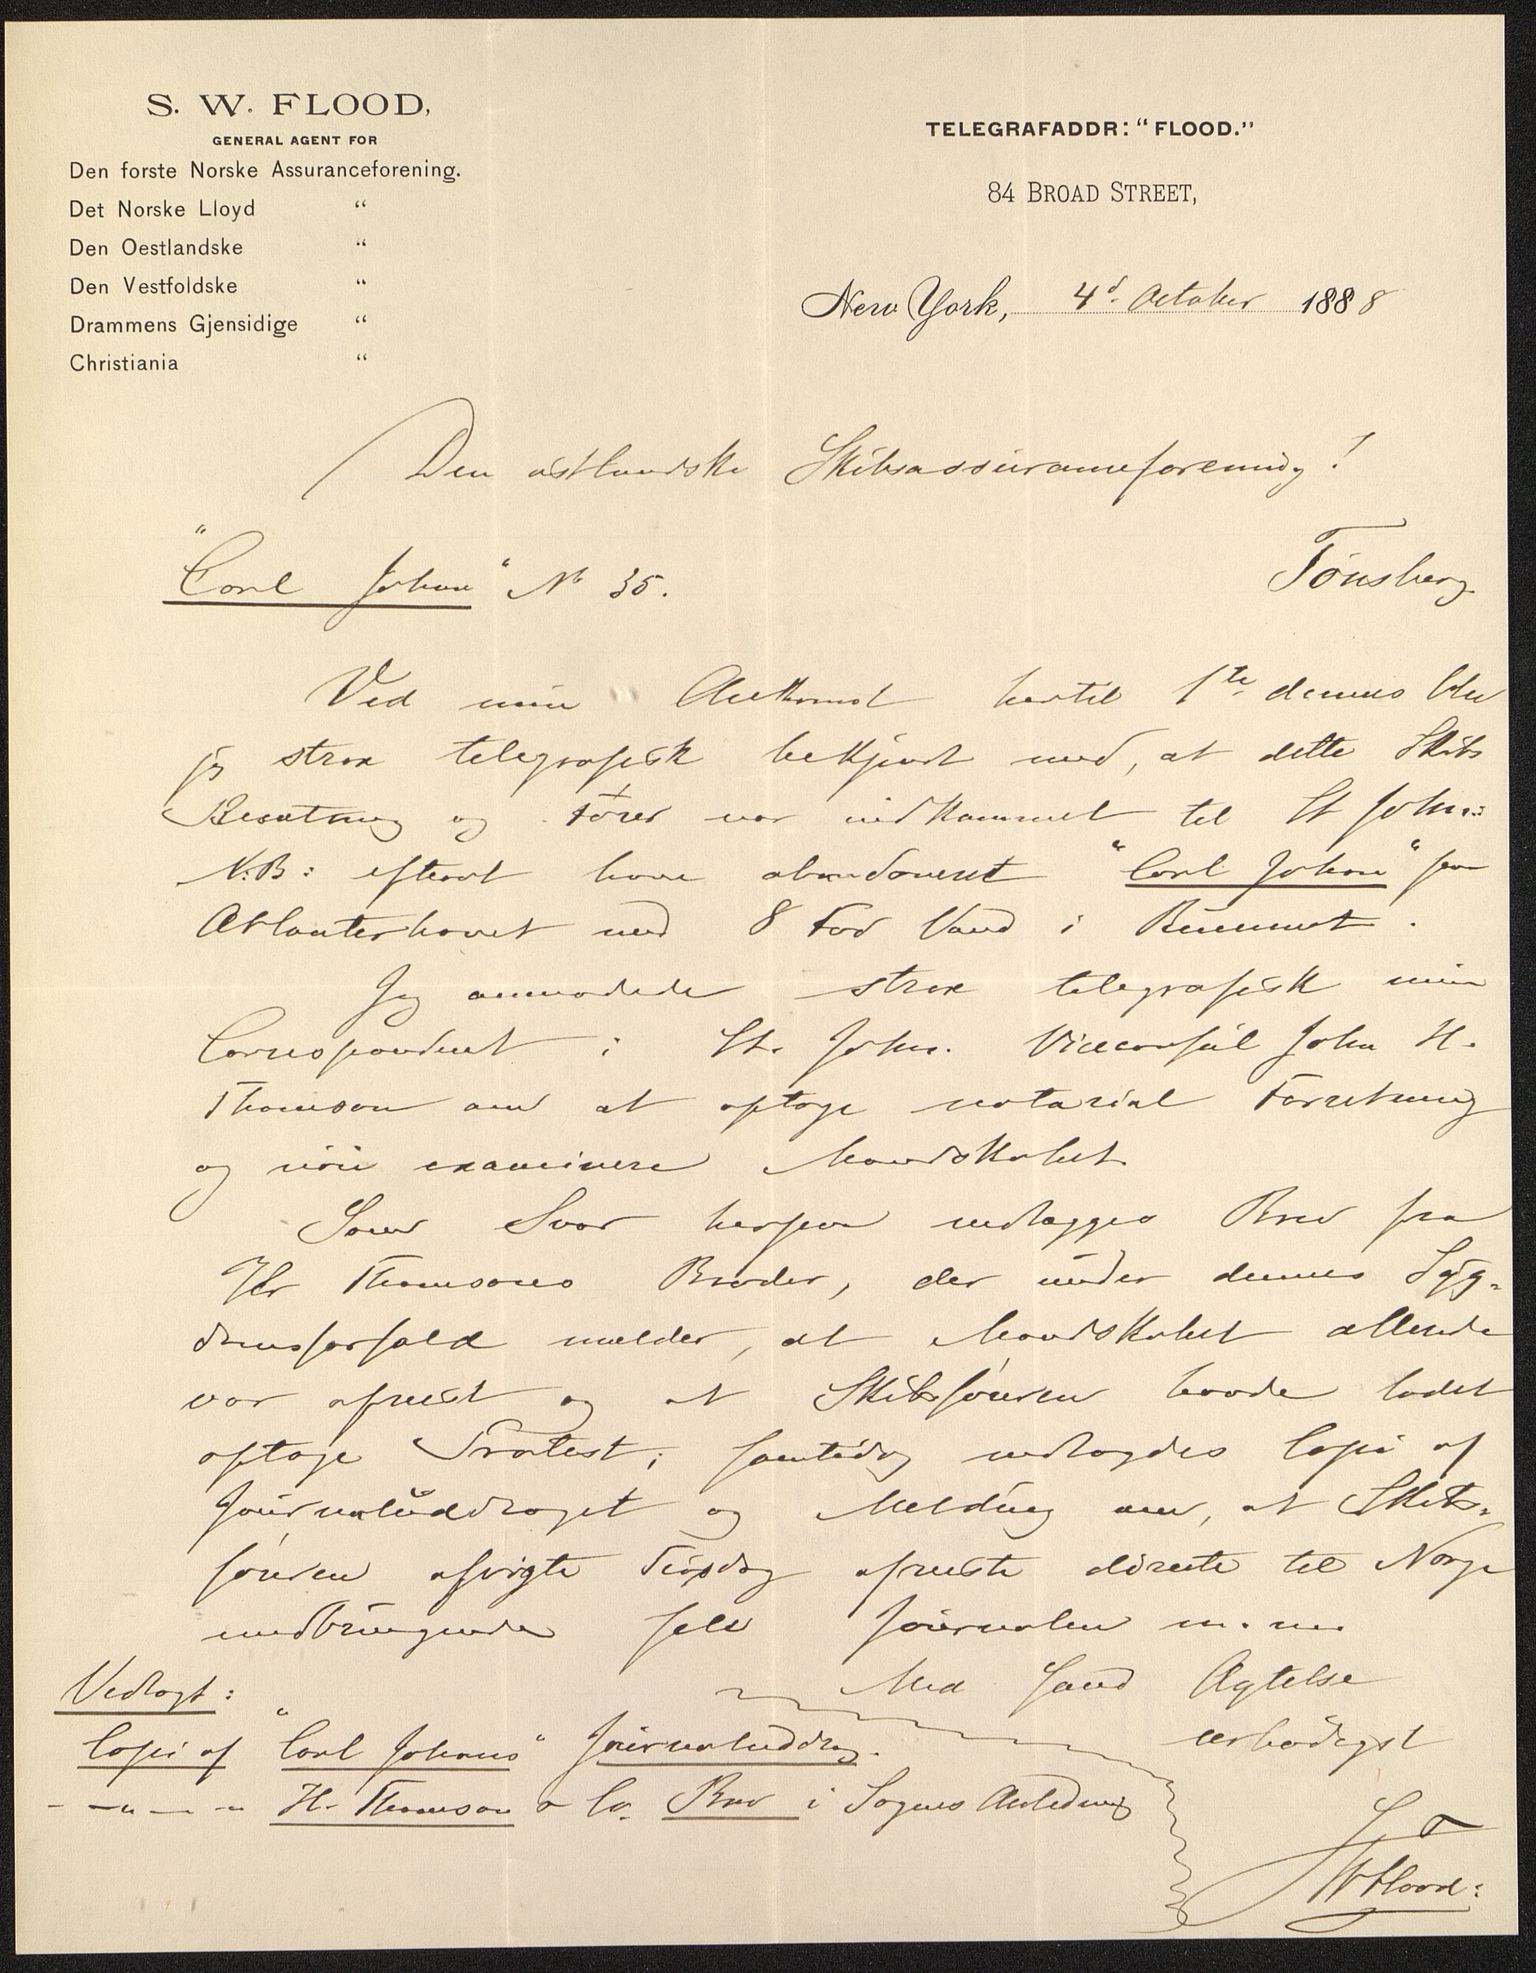 S. W. FLOOD,
GENERAL AGENT FOR
Den forste Norske Assuranceforening.
Det Norske Lloyd "
Den Oestlandske "
Den Vestfoldske "
Drammens Gjensidige "
Christiania "
TELEGRAFADDR: "FLOOD."
84 BROAD STREET,
New York, 4d. October 1888
Den östlandske Skibsassuranceforening!
Tönsberg
"Carl Johan" No 35.
Ved min Ankomst hertil 1te dennes blev
jeg strax telegrafisk bekjendt med, at dette Skibs
Besætning og Förer var indkommet til St John:
N.B: efterat have abandonneret "Carl Johan" paa
Atlanterhavet med 8 Fod Vand i Rummet.
Jeg anmodede strax telegrafisk min
Correspondent i St. John. Viceconsul John H.
Thomson om at optage notarial Forretning
og nöie examinere Mandskabet
Som Svar herpaa medlagges Brev fra
Hr Thomsons Broder, der under dennes Syg-
domsforfald melder, at Mandskabet allerede
var afreist og at Skibsföreren havde ladet
optage Protest; samtidig medlagdes Copi af
Journaluddraget og Melding om, at Skibs-
föreren afvigte Tirsdag afreiste directe til Norge
medbringende selv Journalen m.m.
Med sand Agtelse
ærbödigst
S W Flood:
Vedlagt:
Copi af "Carl Johans" Journaluddrag.
- -"- - - H. Thomson & Co. Brev i Sagens Anledning